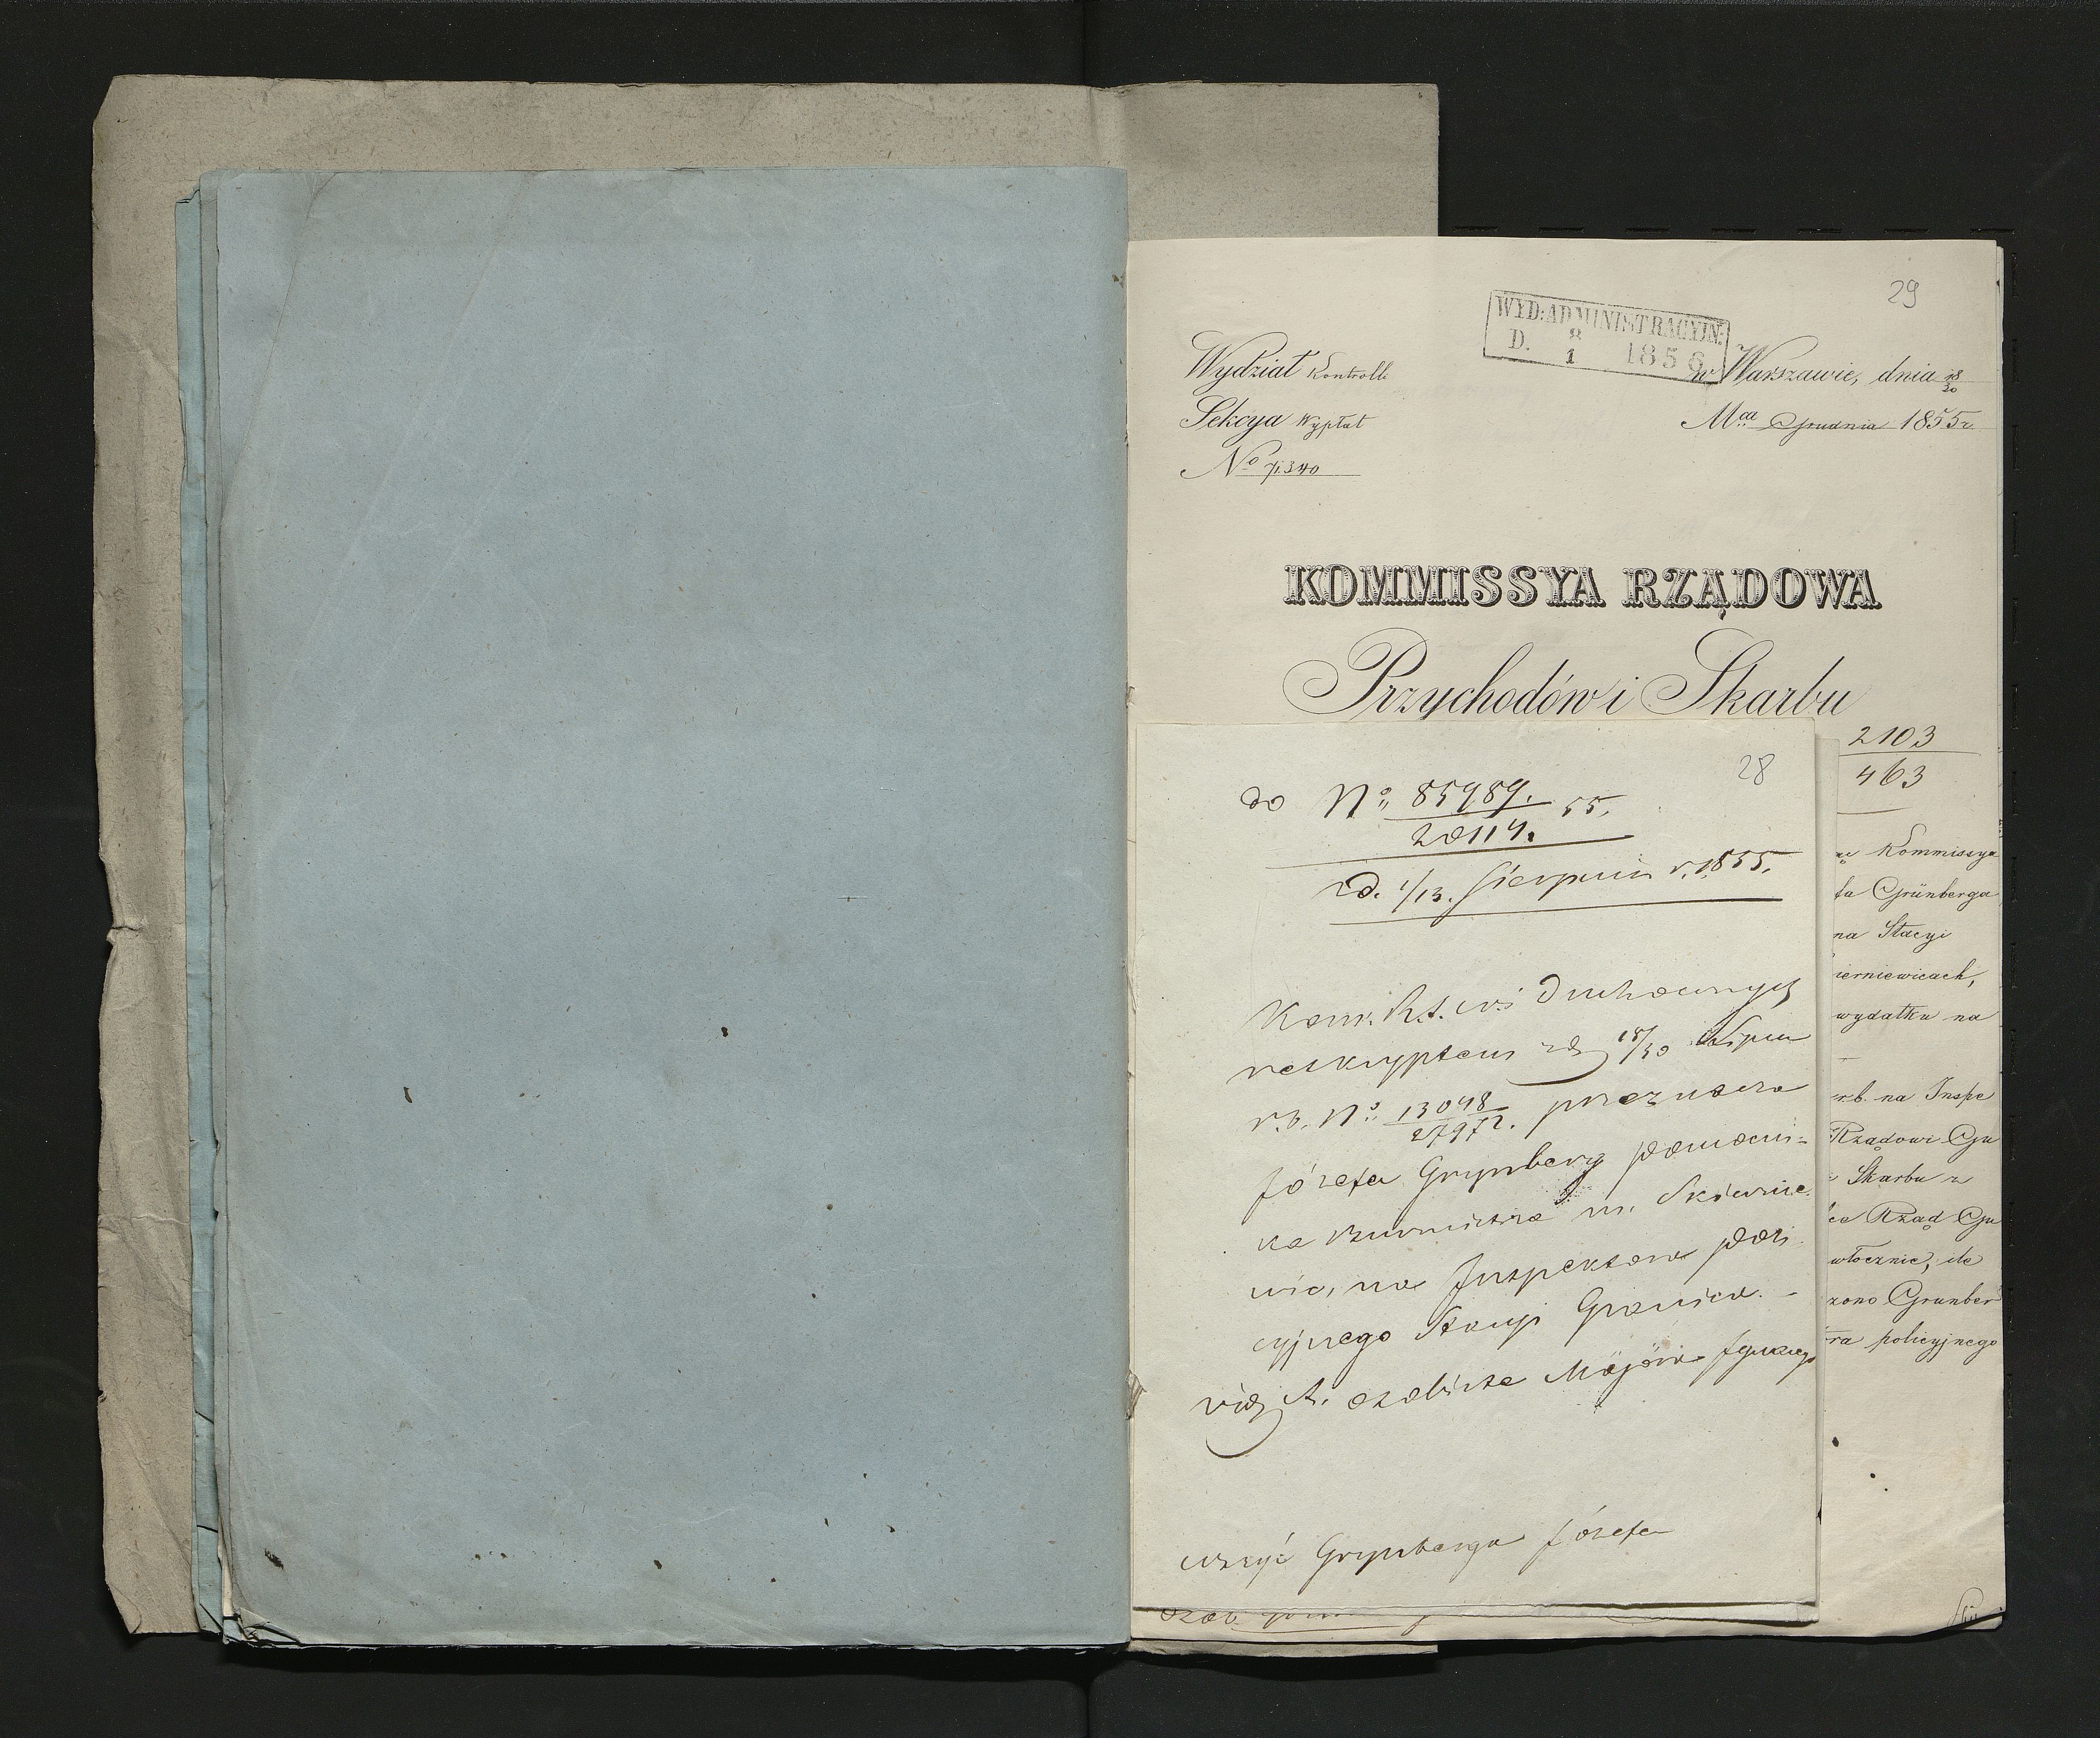 29
WYD: ADMINISTRACYIN:
D. 8 1 1856
Wydział Kontrolli
w Warszawie, dnia 18/30
Sekcya Wypłat
Mca Grudnia 1855 r
No 71340
KOMMISSYA RZĄDOWA
Przychodów i Skarbu
2103
463
Kommissya
fa Grünberga
na Stacyi
ierniewicach,
wydatku na
rb. na Inspe
Rządowi Gu
Skarbu z
Rząd Gu
włocznie, de
zono Grunber
ra policyjnego
28
do No 85989. 55.
20114.
z d. 1/13. Sierpnia r. 1855.
Kom. R. S. W. i Duchownych
reskryptem z d 18/30 Lipca
r. b. No 13048/27972. przeznacza
Józefa Grynberg pomocni-
ka Burmistrza m. Skiernie
wic, na Inspektora poli
cyjnego Stacyi Granica. -
vid A. osobiste
wszyć Grynberga Józefa